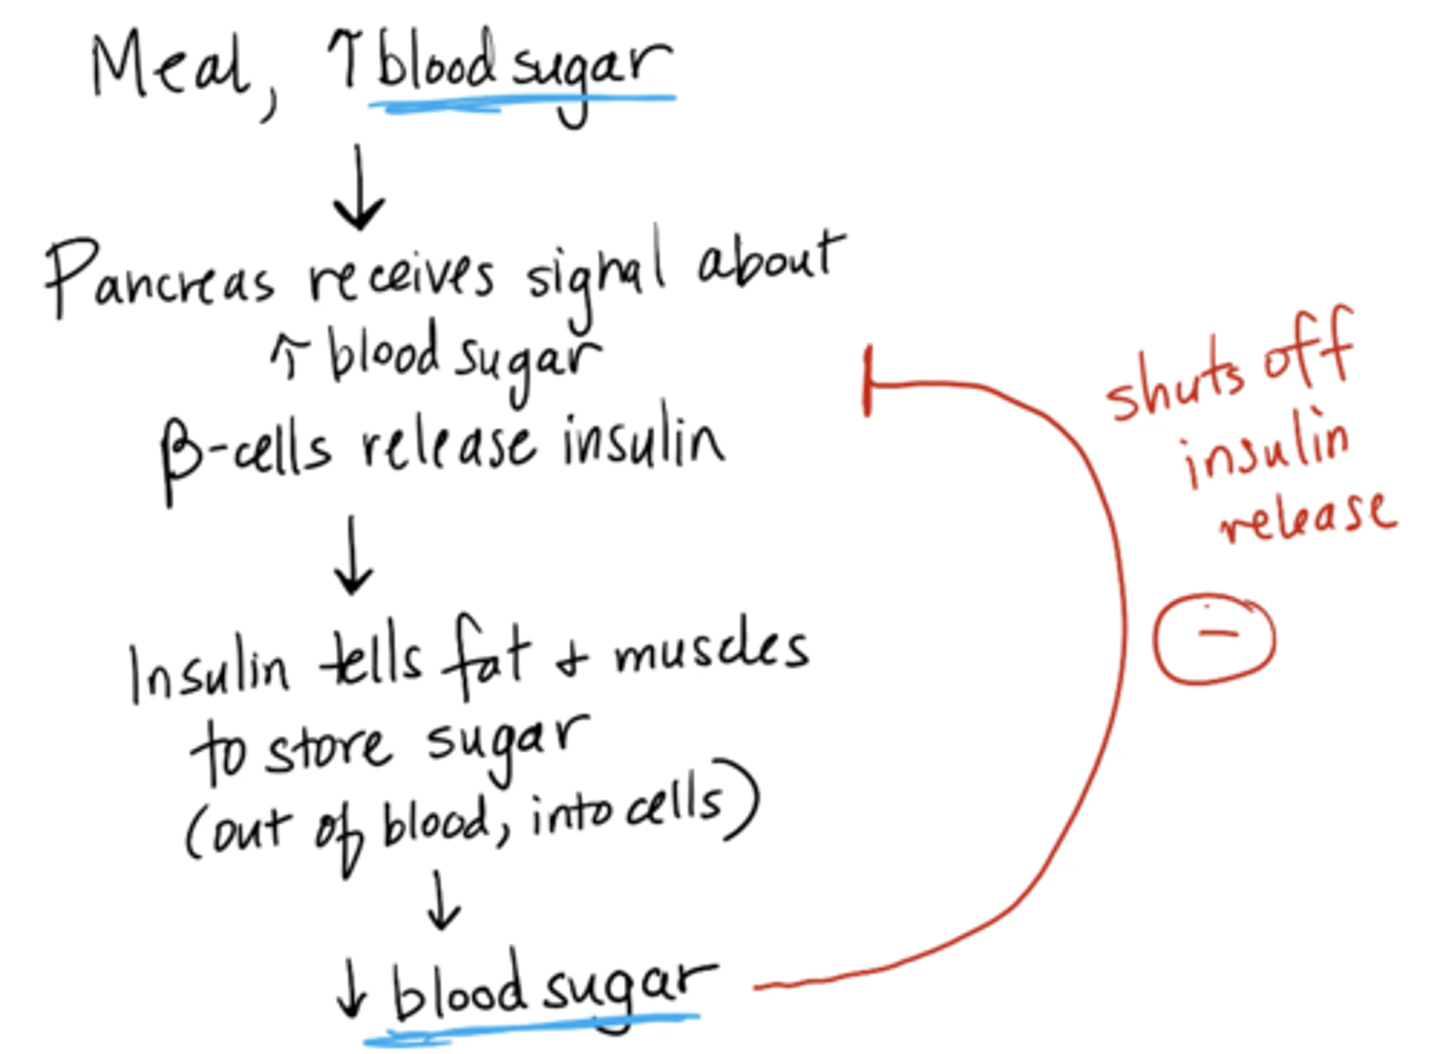 Meal, ↑ blood sugar
↓
Pancreas receives signal about
↑ blood sugar
β-cells release insulin
↓
Insulin tells fat + muscles
to store sugar
(out of blood, into cells)
↓
↓ blood sugar
shuts off
insulin
release
−